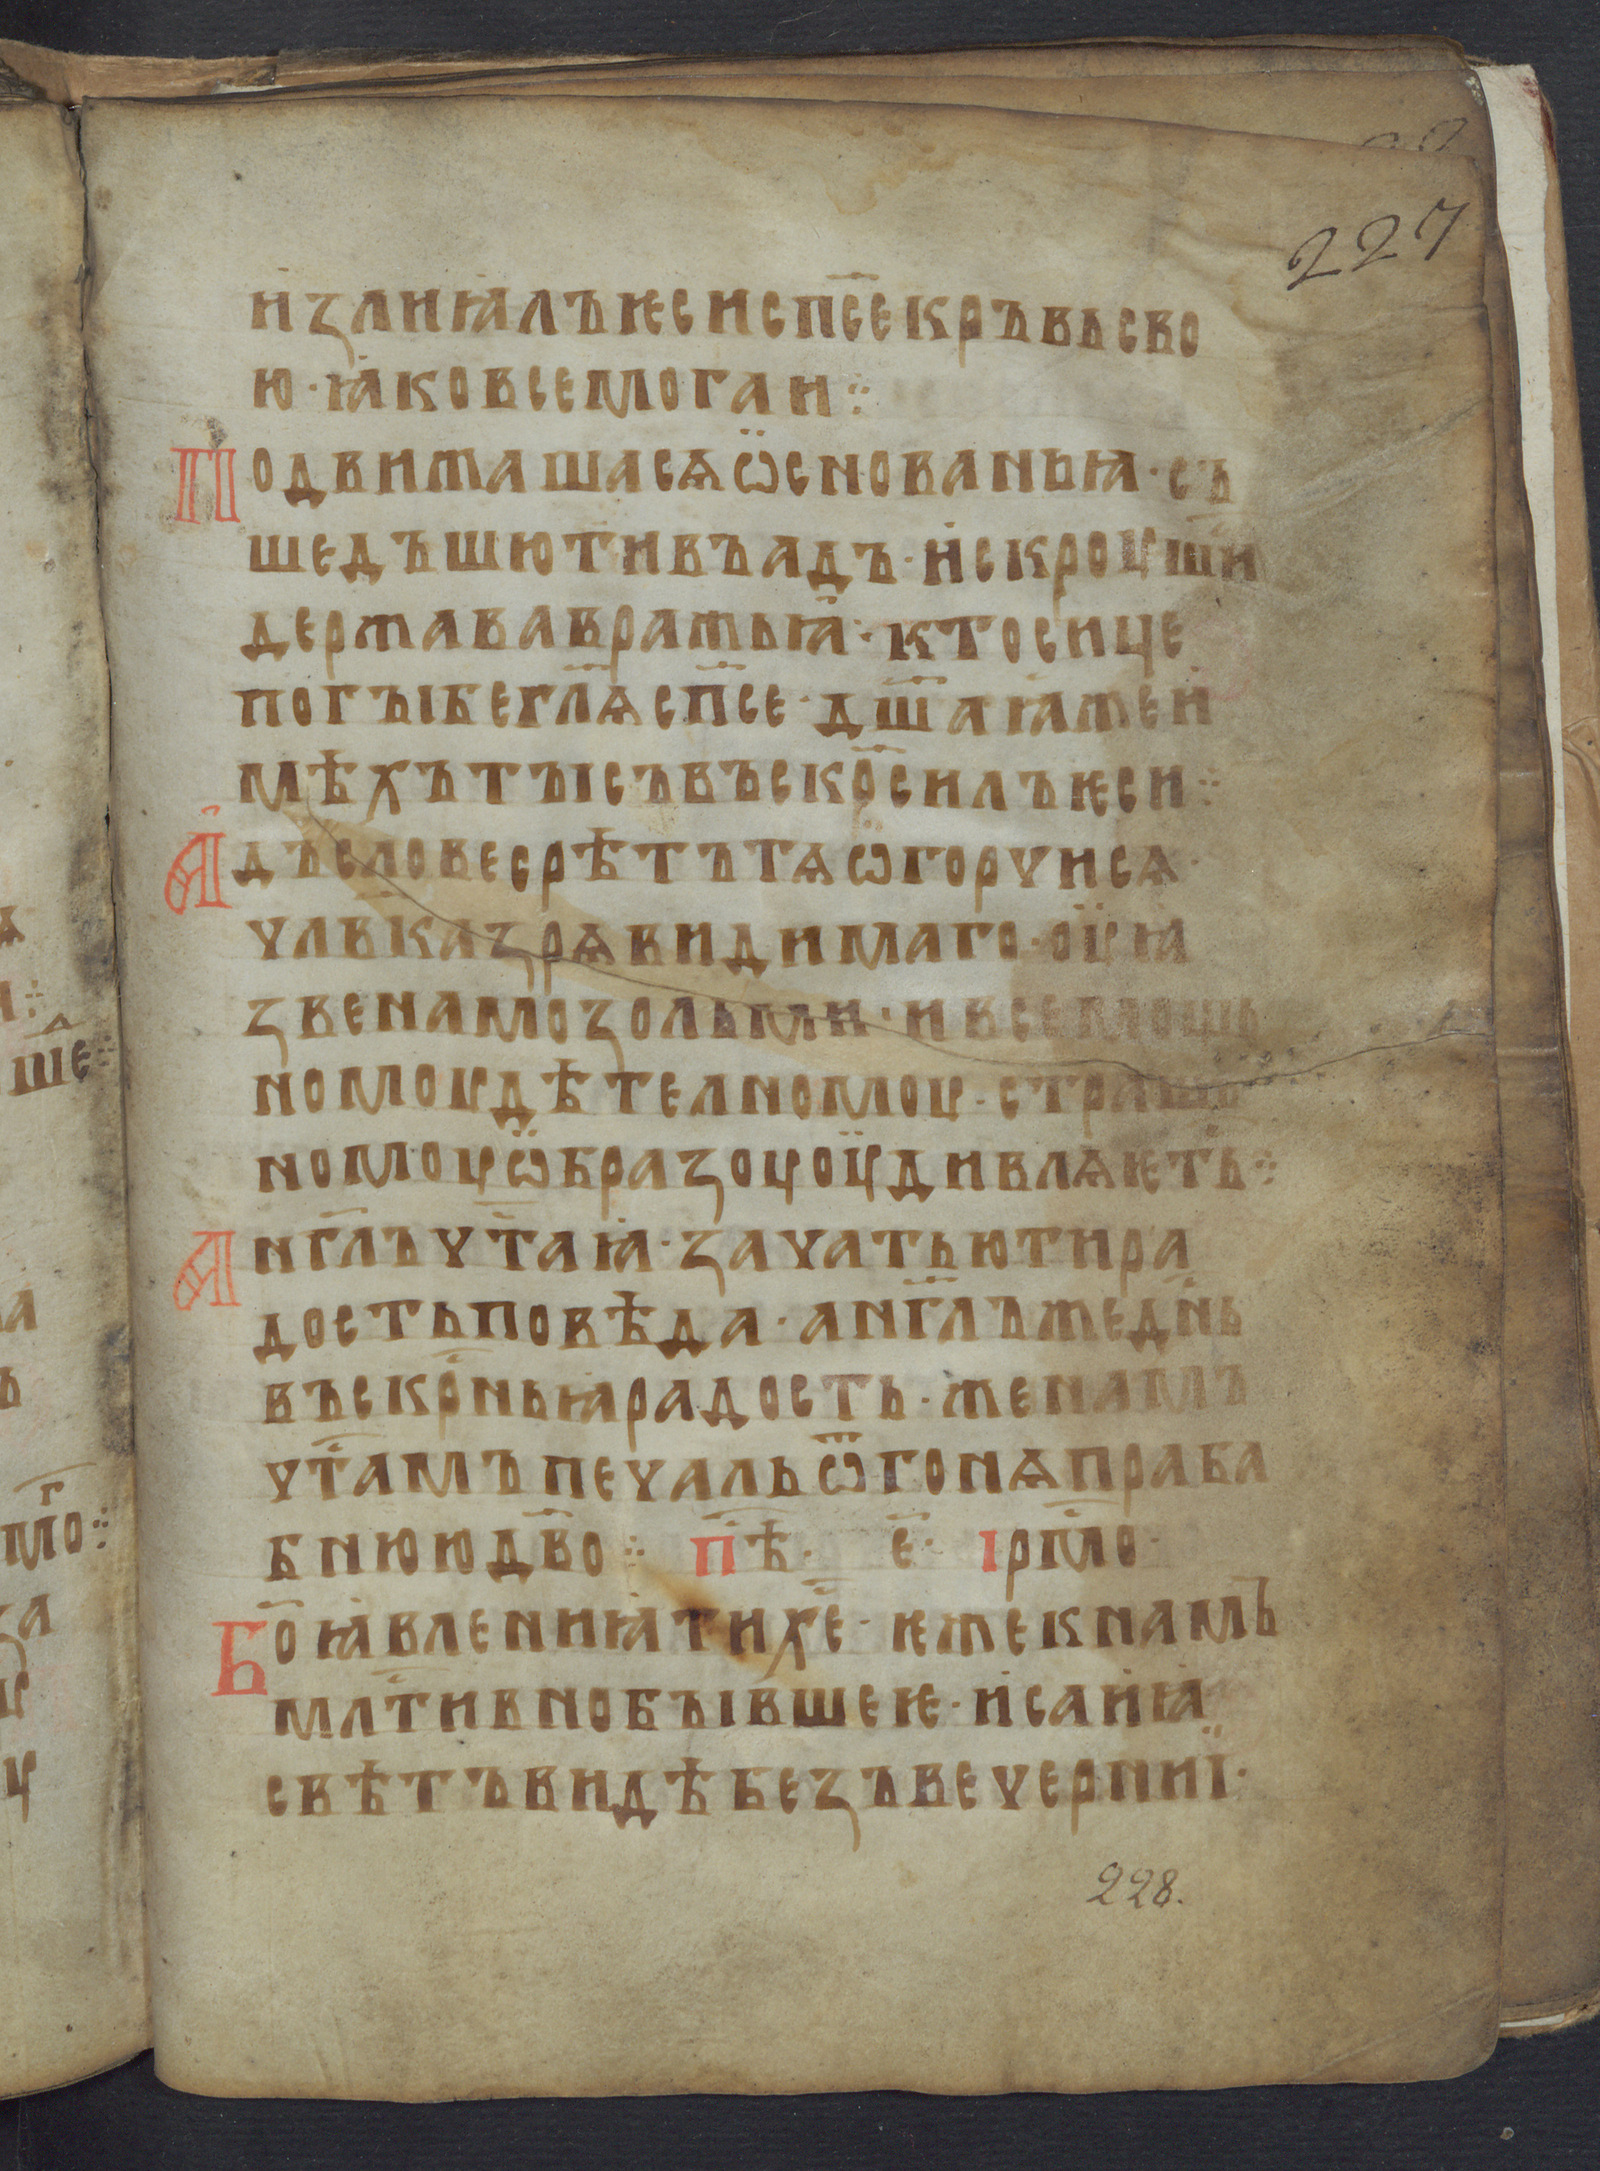 227
излиꙗлъѥсиисп҃секръвьсво
ю·ꙗ́ковсемогаи⁘
Подвижашасѧѡ̈снованьꙗ·съ
шедъшютивъадъ·искроуши
держававражьꙗ·ктосице
погъібегл҃ѧсп҃се·дш҃аꙗжеи
мѣхътъісъвъскр҃силъѥси⁘
Адъсловесрѣтътѧѡ̈горчисѧ·
члв҃казрѧвидимаго·оӱꙗ
звенамозольми·ивсемощь
номоудѣтелномоу·страшь
номоуѡ̈бразоуоӱдивлѧѥть⁘
Анг҃лъчт҃аꙗ·зачатьютира
достьповѣда·анг҃лъжедн҃ь
въскрн҃ьꙗрадость·женамъ
чт҃амъпечальѿгонѧпраба
бнююдв҃о⁘ пѣ҃· е҃· ірмо·
Бо҃ꙗвлениꙗтих҃е·ѥжекнамъ
млт҃ивнобъівшеѥ·исаиꙗ
свѣтъвидѣбезъвечерниї·
228.